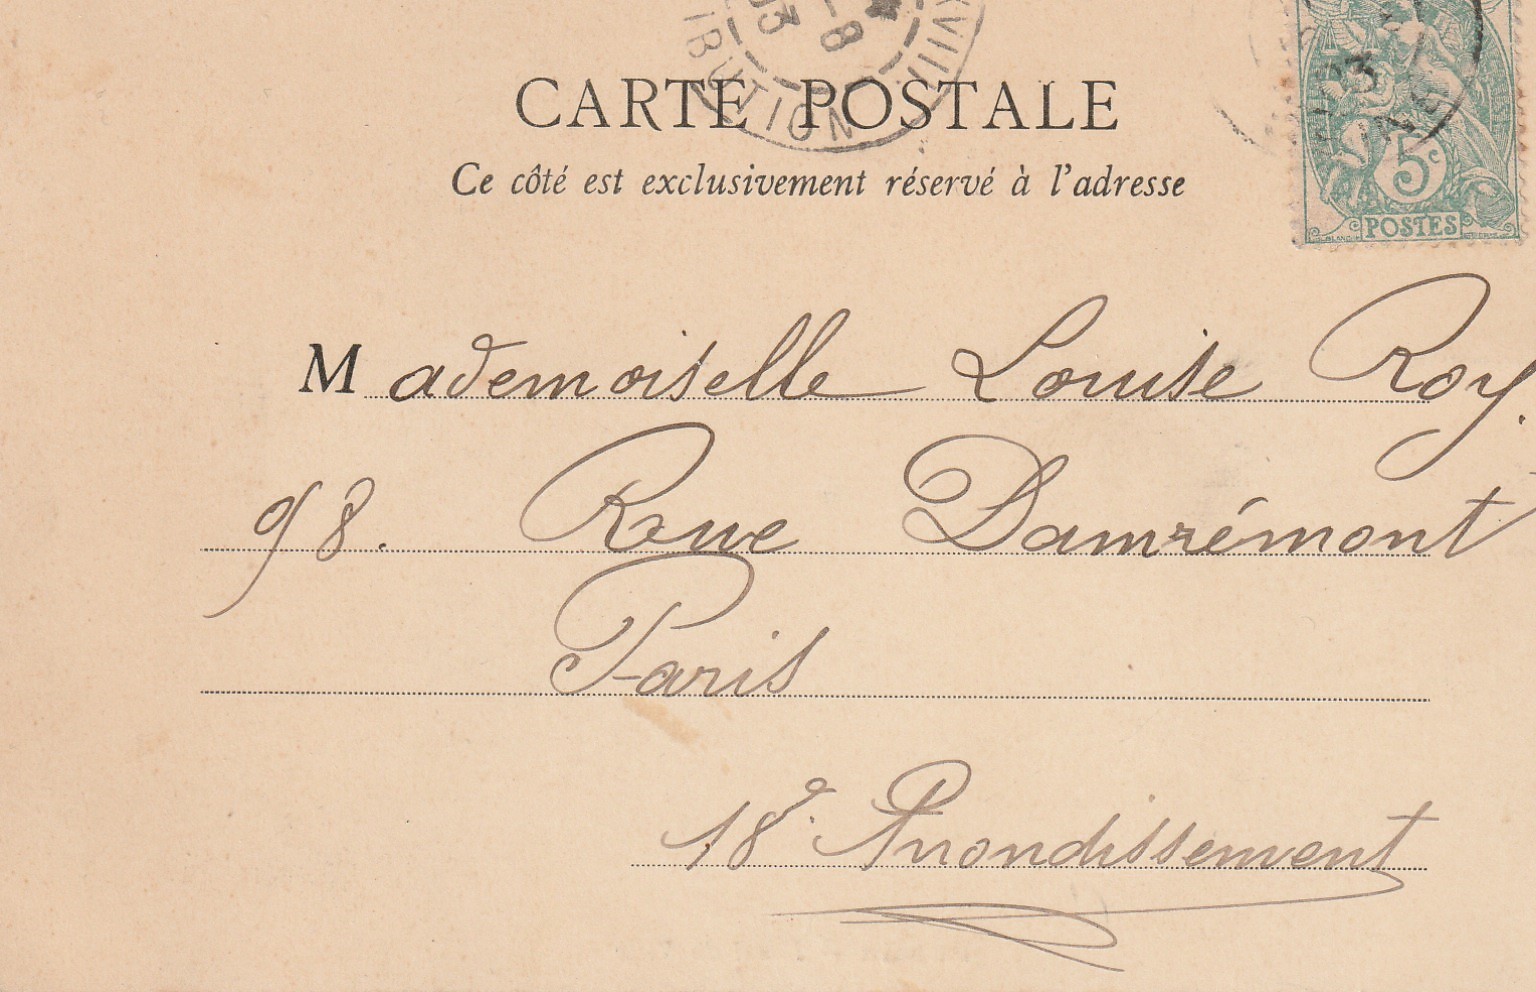 03 -8
IBUTION
CARTE POSTALE
Ce côté est exclusivement réservé à l'adresse
03
5c
POSTES
Mademoiselle Louise Roy.
98. Rue Damrémont
Paris
18e Arrondissement